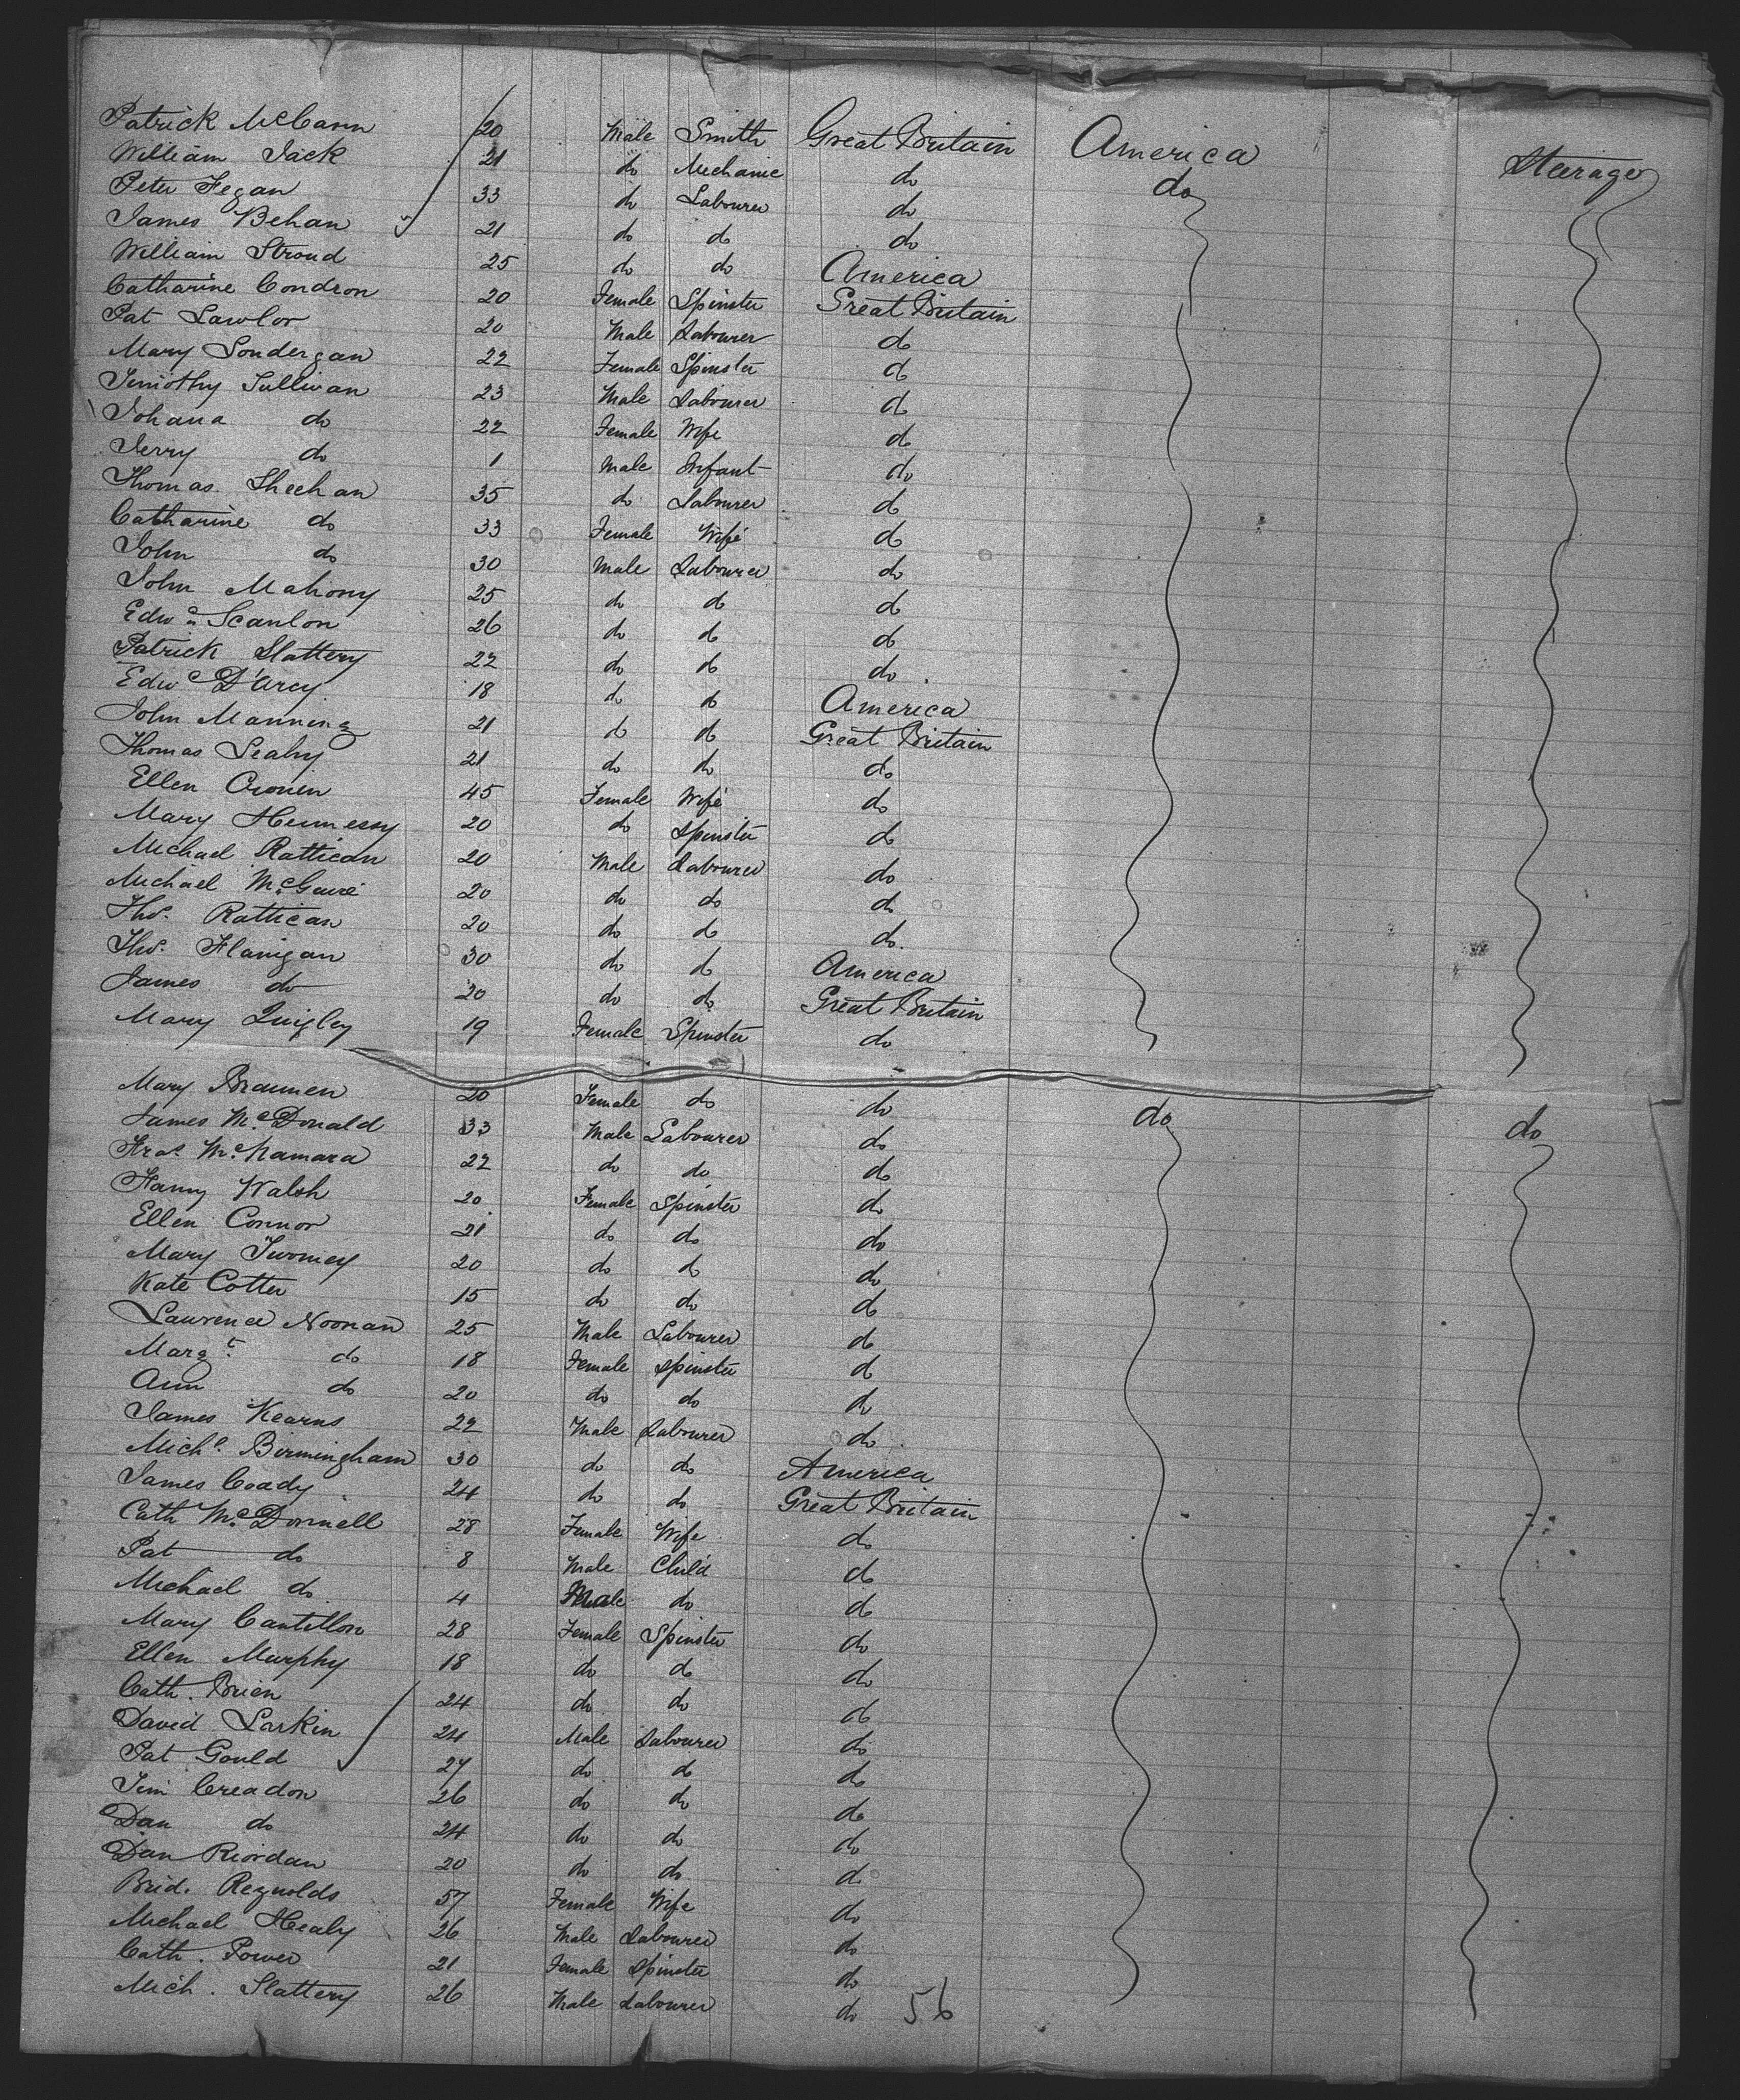 Patrick McCann 20 Male Smith Great Britain America Steerage
William Jack 21 do Mechanic do do
Peter Fegan 33 do Labourer do
James Behan 21 do do do
William Stroud 25 do do America
Catharine Condron 20 Female Spinster Great Britain
Pat Lawlor 20 Male Labourer do
Mary Londergan 22 Female Spinster do
Timothy Sullivan 23 Male Labourer do
Johana do 22 Female Wife do
Jerry do 1 Male Infant do
Thomas Sheehan 35 do Labourer do
Catharine do 33 Female Wife do
John do 30 Male Labourer do
John Mahony 25 do do do
Edwd Scanlon 26 do do do
Patrick Slattery 22 do do do
Edwd D'Arcy 18 do do America
John Manning 21 do do Great Britain
Thomas Leahy 21 do do do
Ellen Cronin 45 Female Wife do
Mary Hennessy 20 do Spinster do
Michael Rattican 20 Male Labourer do
Michael McGuire 20 do do do
Thos. Rattican 20 do do do
Thos. Flanigan 30 do do America
James do 20 do do Great Britain
Mary Quigley 19 Female Spinster do
Mary Brannen 20 Female do do do do
James McDonald 33 Male Labourer do
Fras McNamara 22 do do do
Fanny Walsh 20 Female Spinster do
Ellen Connor 21 do do do
Mary Twomey 20 do do do
Kate Cotter 15 do do do
Laurence Noonan 25 Male Labourer do
Margt. do 18 Female Spinster do
Ann do 20 do do do
James Kearns 22 Male Labourer do
Michl. Birmingham 30 do do America
James Coady 24 do do Great Britain
Cath McDonnell 28 Female Wife do
Pat do 8 Male Child do
Michael do 4 Male do do
Mary Cantillon 28 Female Spinster do
Ellen Murphy 18 do do do
Cath. Brien 24 do do do
David Larkin 24 Male Labourer do
Pat Gould 27 do do do
Tim Creadon 26 do do do
Dan do 24 do do do
Dan Riordan 20 do do do
Brid. Reynolds 57 Female Wife do
Michael Healy 26 Male Labourer do
Cath. Power 21 Female Spinster do
Mich. Slattery 26 Male Labourer do 56